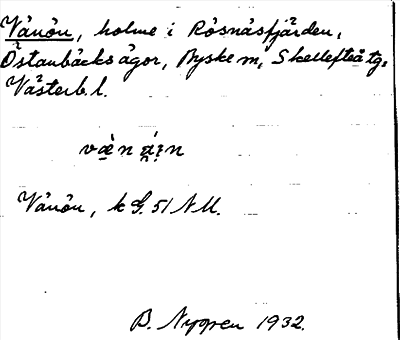 Vånön, holme i Rösnäsfjärden,
Östanbäcks ägor, Byske sn, Skellefteå tg,
Västerb. l.
Vånön, k G. 51 NU.
B. Nygren 1932.